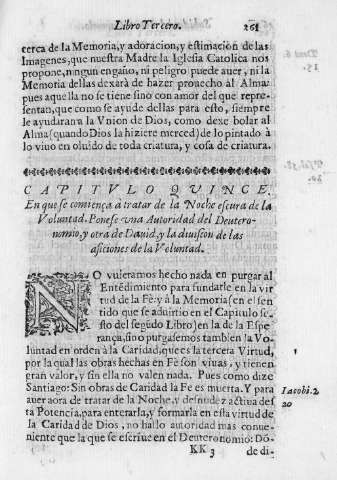 Libro Tercero. 261
cerca de la Memoria, y adoracion, y estimacion de las
Imagenes, que nuestra Madre la Iglesia Catolica nos
propone, ningun engaño, ni peligro puede auer, ni la
Memoria dellas dexarà de hazer prouecho al Alma:
pues aquella no se tiene sino con amor del que repre-
sentan, que como se ayude dellas para esto, siempre
le ayudaran a la Vnion de Dios, como dexe bolar al
Alma (quando Dios la hiziere merced) de lo pintado à
lo viuo en oluido de toda criatura, y cosa de criatura.
CAPITVLO QVINCE.
En que se comiença à tratar de la Noche escura de la
Voluntad. Ponese vna Autoridad del Deutero-
nomio, y otra de Dauid, y la diuision de las
aficiones de la Voluntad.
NO vuieramos hecho nada en purgar al
Entẽdimiento para fundarle en la vir
tud de la Fè: y à la Memoria (en el sen
tido que se aduirtio en el Capitulo se-
sto del segũdo Libro) en la de la Espe
rança, si no purgasemos tambien la Vo
luntad en orden à la Caridad, que es la tercera Virtud,
por la qual las obras hechas en Fè son viuas, y tienen
gran valor, y sin ella no valen nada. Pues como dize
Santiago: Sin obras de Caridad la Fe es muerta. Y para
auer aora de tratar de la Noche, y desnudez actiua des
ta Potencia, para enterarla, y formarla en esta virtud de
la Caridad de Dios, no hallo autoridad mas conue-
niente que la que se escriue en el Deuteronomio: Dõ-
KK 3 de di-
1
Iacobi. 2
20